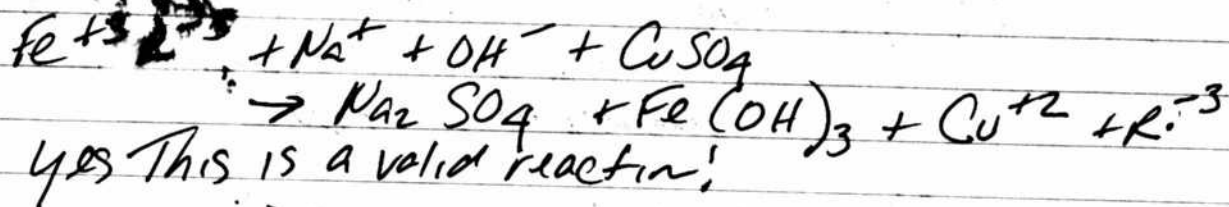 Fe+3 + Na+ + OH- + CuSO4
→ Na2 SO4 + Fe(OH)3 + Cu+2 + R:-3
yes This is a valid reaction!